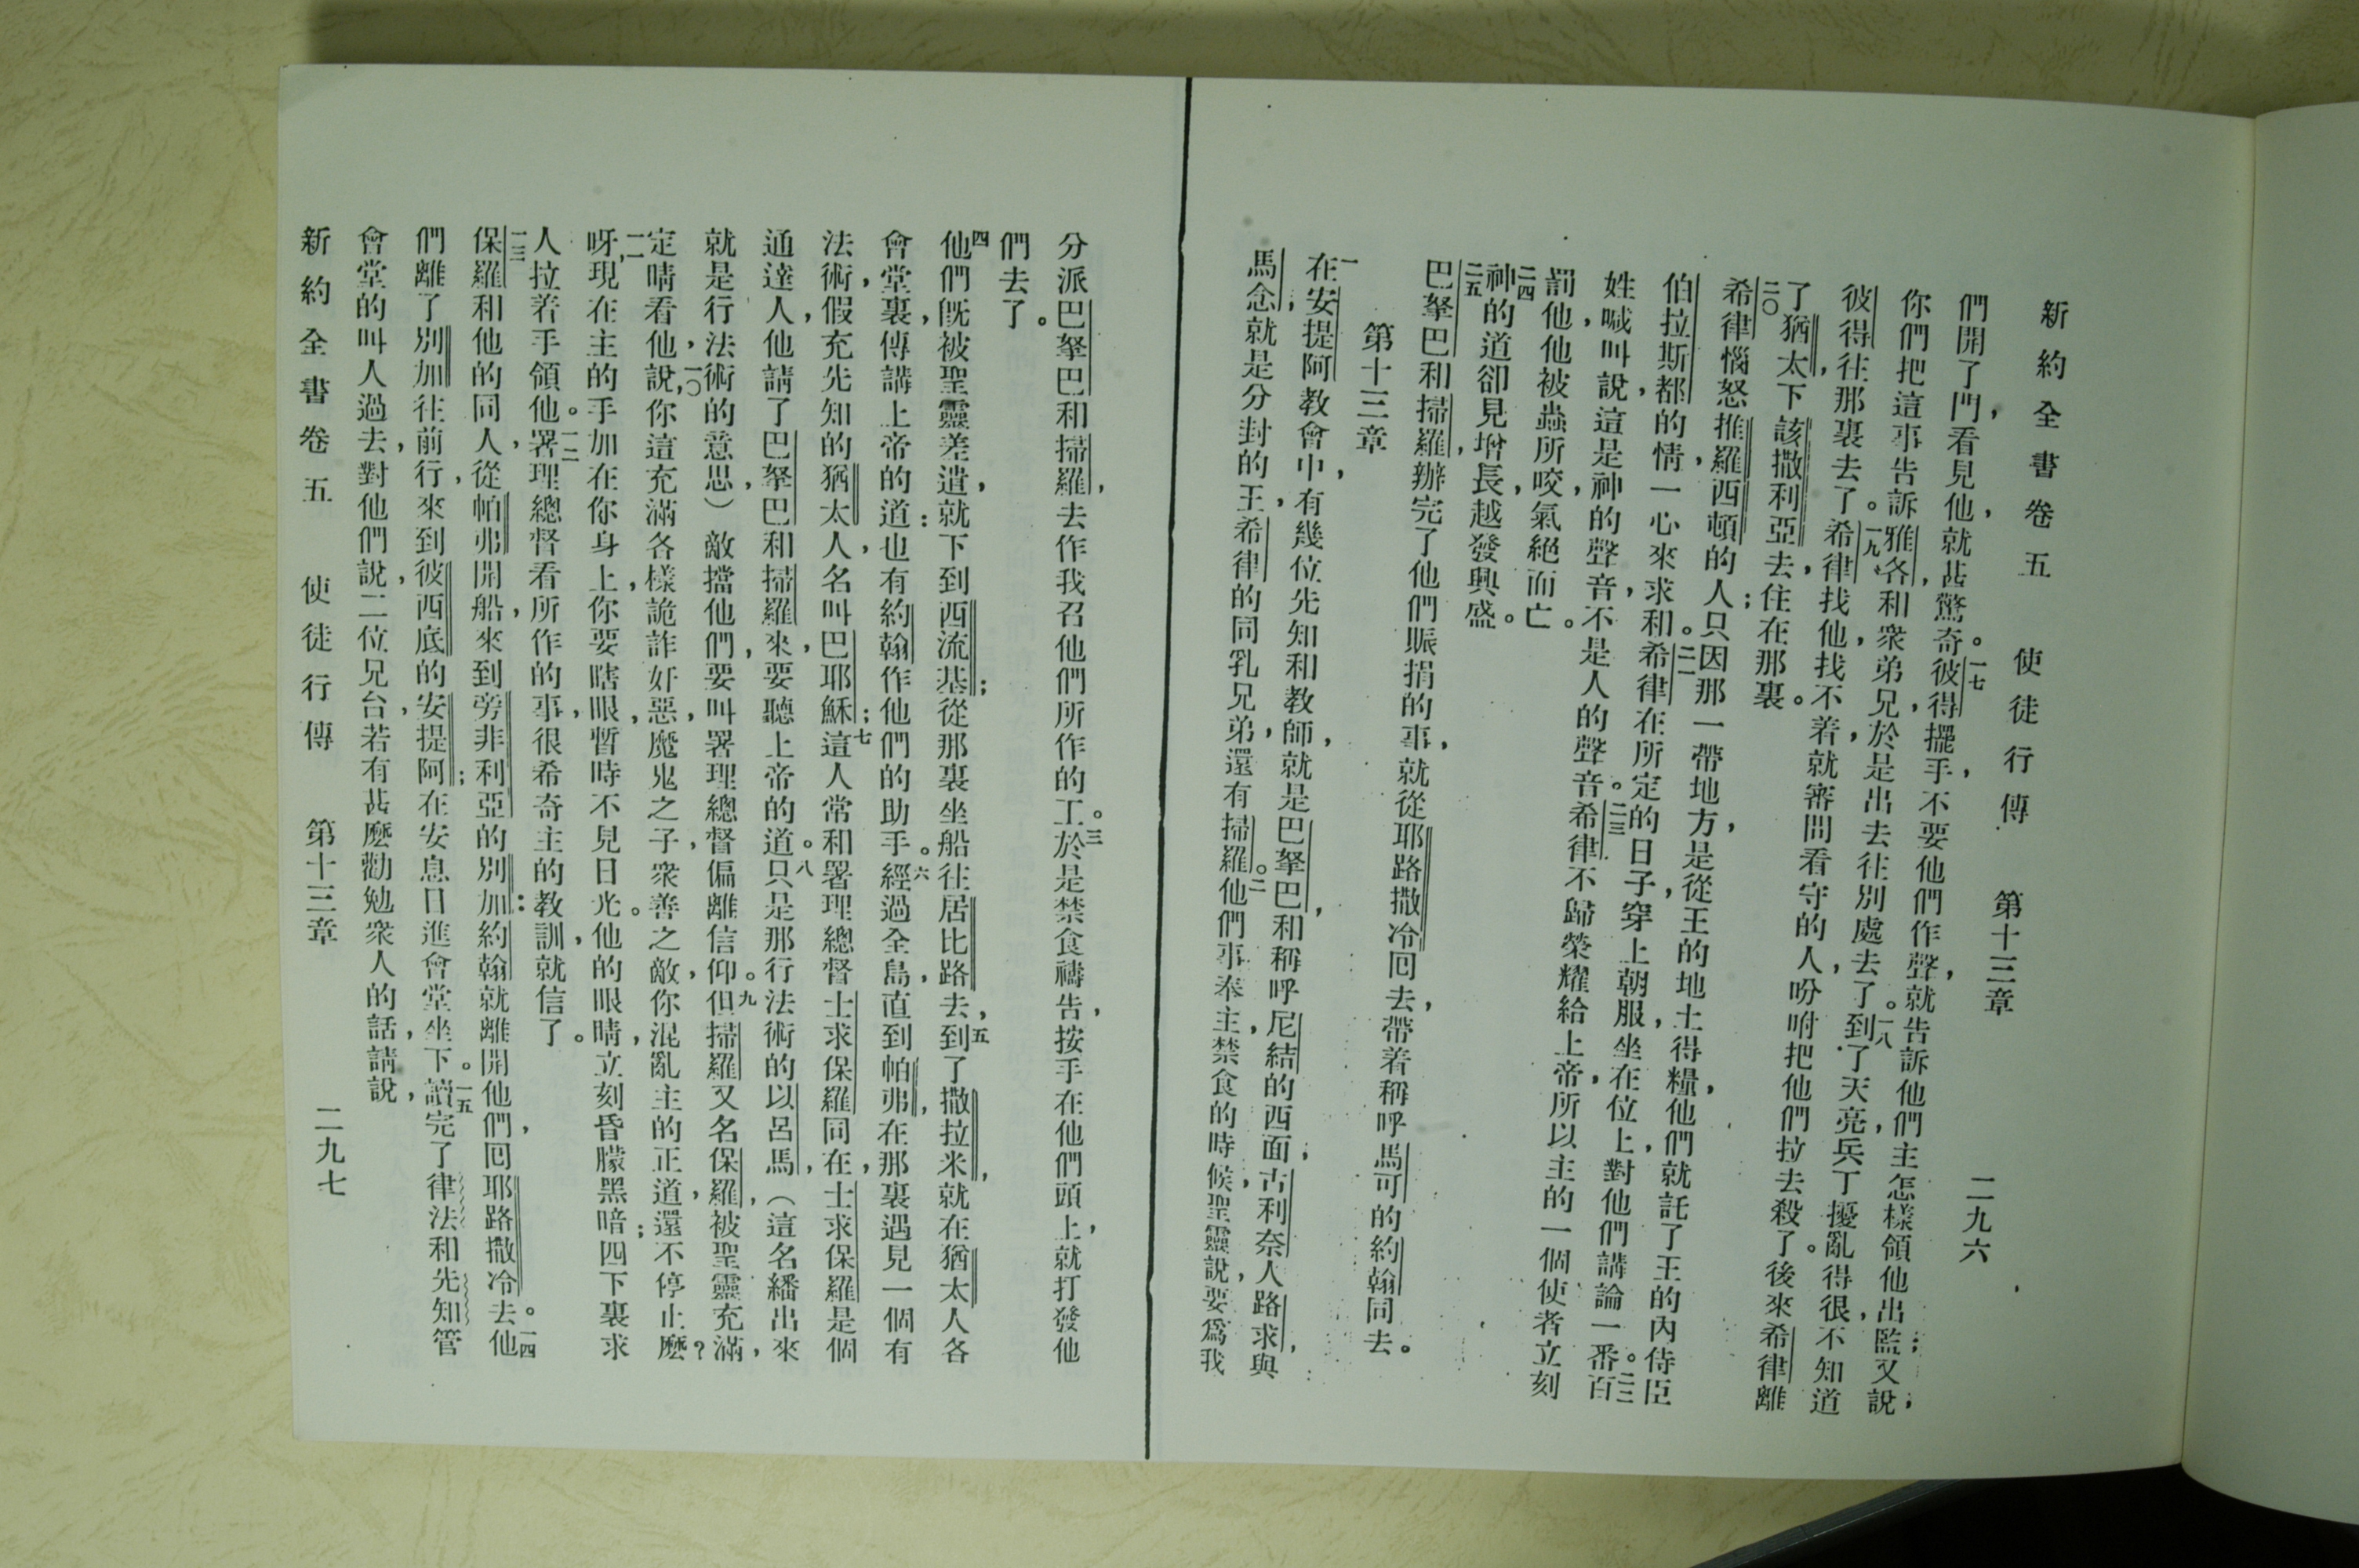 新約全書卷五 使徒行傳 第十三章 二九六
們開了門，看見他，就甚驚奇。一七彼得擺手，不要他們作聲，就告訴他們主怎樣領他出監；又說；
你們把這事告訴雅各，和衆弟兄，於是出去往別處去了。一八到了天亮，兵丁擾亂得很，不知道
彼得往那裏去了。一九希律找他，找不着，就審問看守的人，吩咐把他們拉去殺了。後來希律離
了猶太，下該撒利亞去，住在那裏。
二〇希律惱怒推羅西頓的人；只因那一帶地方，是從王的地土得糧，他們就託了王的內侍臣
伯拉斯都的情，一心來求和。二一希律在所定的日子，穿上朝服，坐在位上，對他們講論一番。二二百
姓喊叫說，這是神的聲音，不是人的聲音。二三希律不歸榮耀給上帝，所以主的一個使者立刻
罰他，他被蟲所咬，氣絕而亡。
二四神的道卻見增長，越發興盛。
二五巴拏巴和掃羅，辦完了他們賑捐的事，就從耶路撒冷回去，帶着稱呼馬可的約翰同去。
第十三章
一在安提阿教會中，有幾位先知和教師，就是巴拏巴，和稱呼尼結的西面；古利奈人路求，與
馬念，就是分封的王，希律的同乳兄弟，還有掃羅。二他們事奉主，禁食的時候，聖靈說，要爲我
分派巴拏巴和掃羅，去作我召他們所作的工。三於是禁食禱告，按手在他們頭上，就打發他
們去了。
四他們旣被聖靈差遣，就下到西流基；從那裏坐船往居比路去，五到了撒拉米，就在猶太人各
會堂裏，傳講上帝的道：也有約翰作他們的助手。六經過全島，直到帕弗，在那裏遇見一個有
法術，假充先知的猶太人，名叫巴耶穌；七這人常和署理總督士求保羅同在，士求保羅是個
通達人，他請了巴拏巴和掃羅來，要聽上帝的道。八只是那行法術的以呂馬，（這名繙出來
就是行法術的意思）敵擋他們，要叫署理總督偏離信仰。九但掃羅又名保羅，被聖靈充滿，
定睛看他，一〇說，你這充滿各樣詭詐奸惡，魔鬼之子，衆善之敵，你混亂主的正道，還不停止麼？
一一呀，現在主的手加在你身上，你要瞎眼，暫時不見日光。他的眼睛，立刻昏朦黑暗；四下裏求
人拉着手領他。一二署理總督看所作的事，很希奇主的教訓，就信了。
一三保羅和他的同人，從帕弗開船，來到旁非利亞的別加：約翰就離開他們，回耶路撒冷去。一四他
們離了別加，往前行，來到彼西底的安提阿；在安息日進會堂坐下。一五讀完了律法和先知，管
會堂的叫人過去，對他們說，二位兄台，若有甚麼勸勉衆人的話，請說，
新約全書卷五 使徒行傳 第十三章 二九七